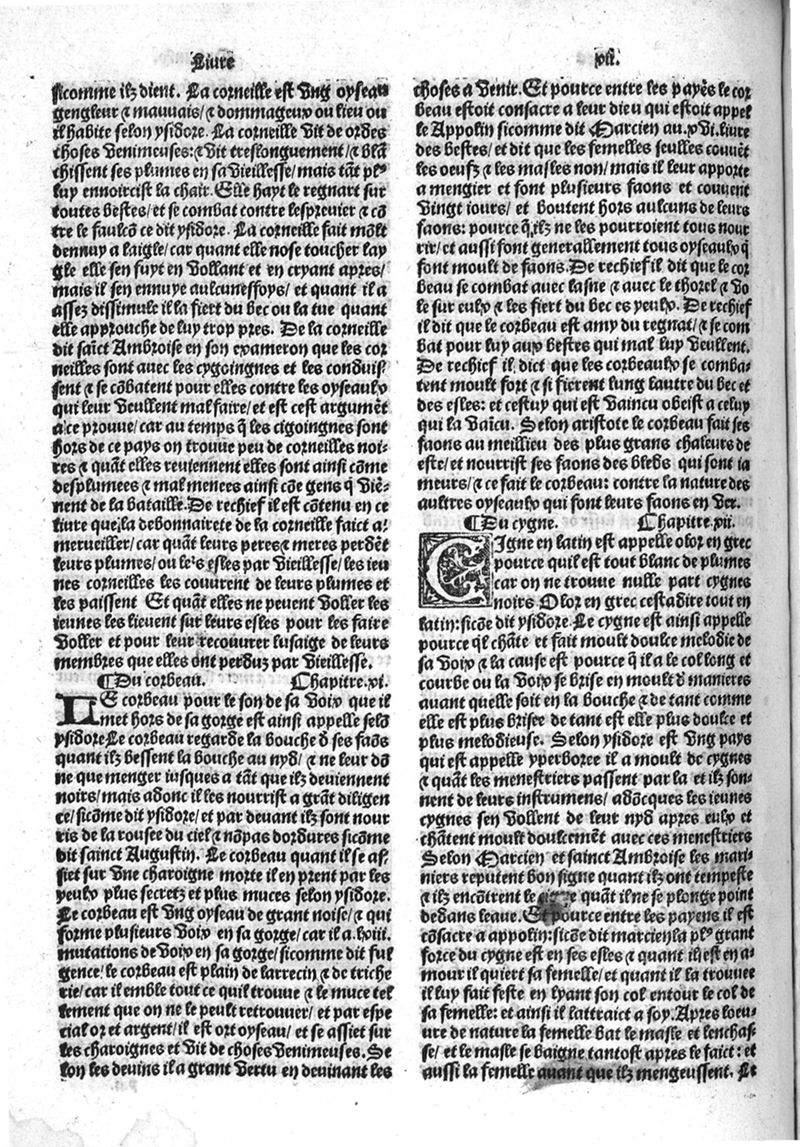 Liure
xii.
sicomme ilz dient. La corneille est vng oyseau
gengleur & mauuais/& dommageux ou lieu ou
il habite selon ysidore. La corneille vit de ordes
choses venimeuses: & vit treslonguement/& blã
chissent ses plumes en sa vieillesse/mais tãt plꝰ
luy ennoircist la chair. Elle hayt le regnart sur
toutes bestes/et se combat contre lespreuier & cõ
tre le faulcõ ce dit ysidore. La corneille fait mõlt
dennuy a laigle/car quant elle nose toucher lay
gle elle sen fuyt en vollant et en cryant apres/
mais il sen ennuye aulcuneffoys/et quant il a
assez dissimule il la fiert du bec ou la tue quant
elle approuche de luy trop pres. De la corneille
dit saict Ambroise en son exameron que les cor
neilles sont auec les cygoingnes et les conduis
sent & se cõbatent pour elles contre les oyseaulx
qui leur veullent mal faire/et est cest argumẽt
a ce prouue/car au temps q̃ les cigoingnes sont
hors de ce pays on trouue peu de corneilles noi-
res & quãt elles reuiennent elles sont ainsi cõme
desplumees & mal menees ainsi cõe gens q̃ viẽ-
nent de la bataille. De rechief il est cõtenu en ce
liure que/la debonnairete de la corneille faict a
merueiller/car quãt leurs peres & meres perdẽt
leurs plumes/ou leꝰs esles par vieillesse/les ieu
nes corneilles les couurent de leurs plumes et
les paissent Et quãt elles ne peuent voller les
ieunes les lieuent sur leurs esles pour les faire
voller et pour leur recouurer lusaige de leurs
membres que elles ont perduz par vieillesse.
¶Du corbeau. Chapitre.xi.
LE corbeau pour le son de sa voix que il
met hors de sa gorge est ainsi appelle selõ
ysidore Le corbeau regarde la bouche d̃ ses faõs
quant ilz bessent la bouche au nyd/& ne leur dõ
ne que menger iusques a tãt que ilz deuiennent
noirs/mais adonc il les nourrist a grãt diligen
ce/sicõme dit ysidore/et par deuant ilz sont nour
ris de la rousee du ciel & nõpas dordures sicõme
dit sainct Augustin. Le corbeau quant il se as/
siet sur vne charoigne morte il en prent par les
yeulx plus secretz et plus muces selon ysidore.
Le corbeau est vng oyseau de grant noise/& qui
forme plusieurs voix en sa gorge/car il a.lxiii.
mutations de voix en sa gorge/sicomme dit ful
gence/le corbeau est plain de larrecin & de triche
rie/car il emble tout ce quil trouue & le muce tel
lement que on ne le peult retrouuer/et par espe
cial or et argent/il est ort oyseau/et se assiet sur
les charoignes et vit de choses venimeuses. Se
lon les deuins il a grant vertu en deuinant les
choses a venir. Et pource entre les payẽs le cor
beau estoit consacre a leur dieu qui estoit appel
le Appolin sicomme dit Marcien au.xvi.liure
des bestes/et dit que les femelles seulles couuẽt
les oeufz & les masles non/mais il leur apporte
a mengier et sont plusieurs faons et couuent
vingt iours/et boutent hors aulcuns de leurs
faons: pource q̃ ilz ne les pourroient tous nour
rir/et aussi font generallement tous oyseaulx q̃
font moult de faons. De rechief il dit que le cor
beau se combat auec lasne & auec le thorel & vo
le sur eulx & les fiert du bec es yeulx. De rechief
il dit que le corbeau est amy du regnat/& se com
bat pour luy aux bestes qui mal luy veullent.
De rechief il dict que les corbeaulx se comba-
tent moult fort & si fierent lung lautre du bec et
des esles: et cestuy qui est vaincu obeist a celuy
qui la vaicu. Selon aristote le corbeau fait ses
faons au meillieu des plus grans chaleurs de
este/et nourrist ses faons des bledz qui sont ia
meurs/& ce fait le corbeau: contre la nature des
aultres oyseaulx qui font leurs faons en ver.
¶Du cygne. Chapitre.xii.
CIgne en latin est appelle olor en grec
pource quil est tout blanc de plumes
car on ne trouue nulle part cygnes
noirs Olor en grec cestadire tout en
latin: sicõe dit ysidore. Le cygne est ainsi appelle
pource ql̃ chãte et fait moult doulce melodie de
sa voix & la cause est pource q̃ il a le col long et
courbe ou la voix se brise en moult d̃ manieres
auant quelle soit en la bouche & de tant comme
elle est plus brisee de tant est elle plus doulce et
plus melodieuse. Selon ysidore est vng pays
qui est appelle yperboree il a moult de cygnes
& quãt les menestriers passent par la et ilz son-
nent de leurs instrumens/adõcques les ieunes
cygnes sen vollent de leur nyd apres eulx et
chãtent moult doulcemẽt auec ces menestriers
Selon Marcien et sainct Ambroise les mari-
niers reputent bon signe quant ilz ont tempeste
& ilz encõtrent le quãt il ne se plonge point
dedans leaue. Et pource entre les payens il est
cõsacre a appolin: sicõe dit marcien la plꝰ grant
force du cygne est en ses esles & quant il est en a-
mour il quiert sa femelle/et quant il la trouuee
il luy fait feste en lyant son col entour le col de
sa femelle: et ainsi il lattraict a soy. Apres loeu-
ure de nature la femelle bat le masle et lenchas-
se/et le masle se baigne tantost apres le faict: et
aussi la femelle auant que ilz mengeussent. Le